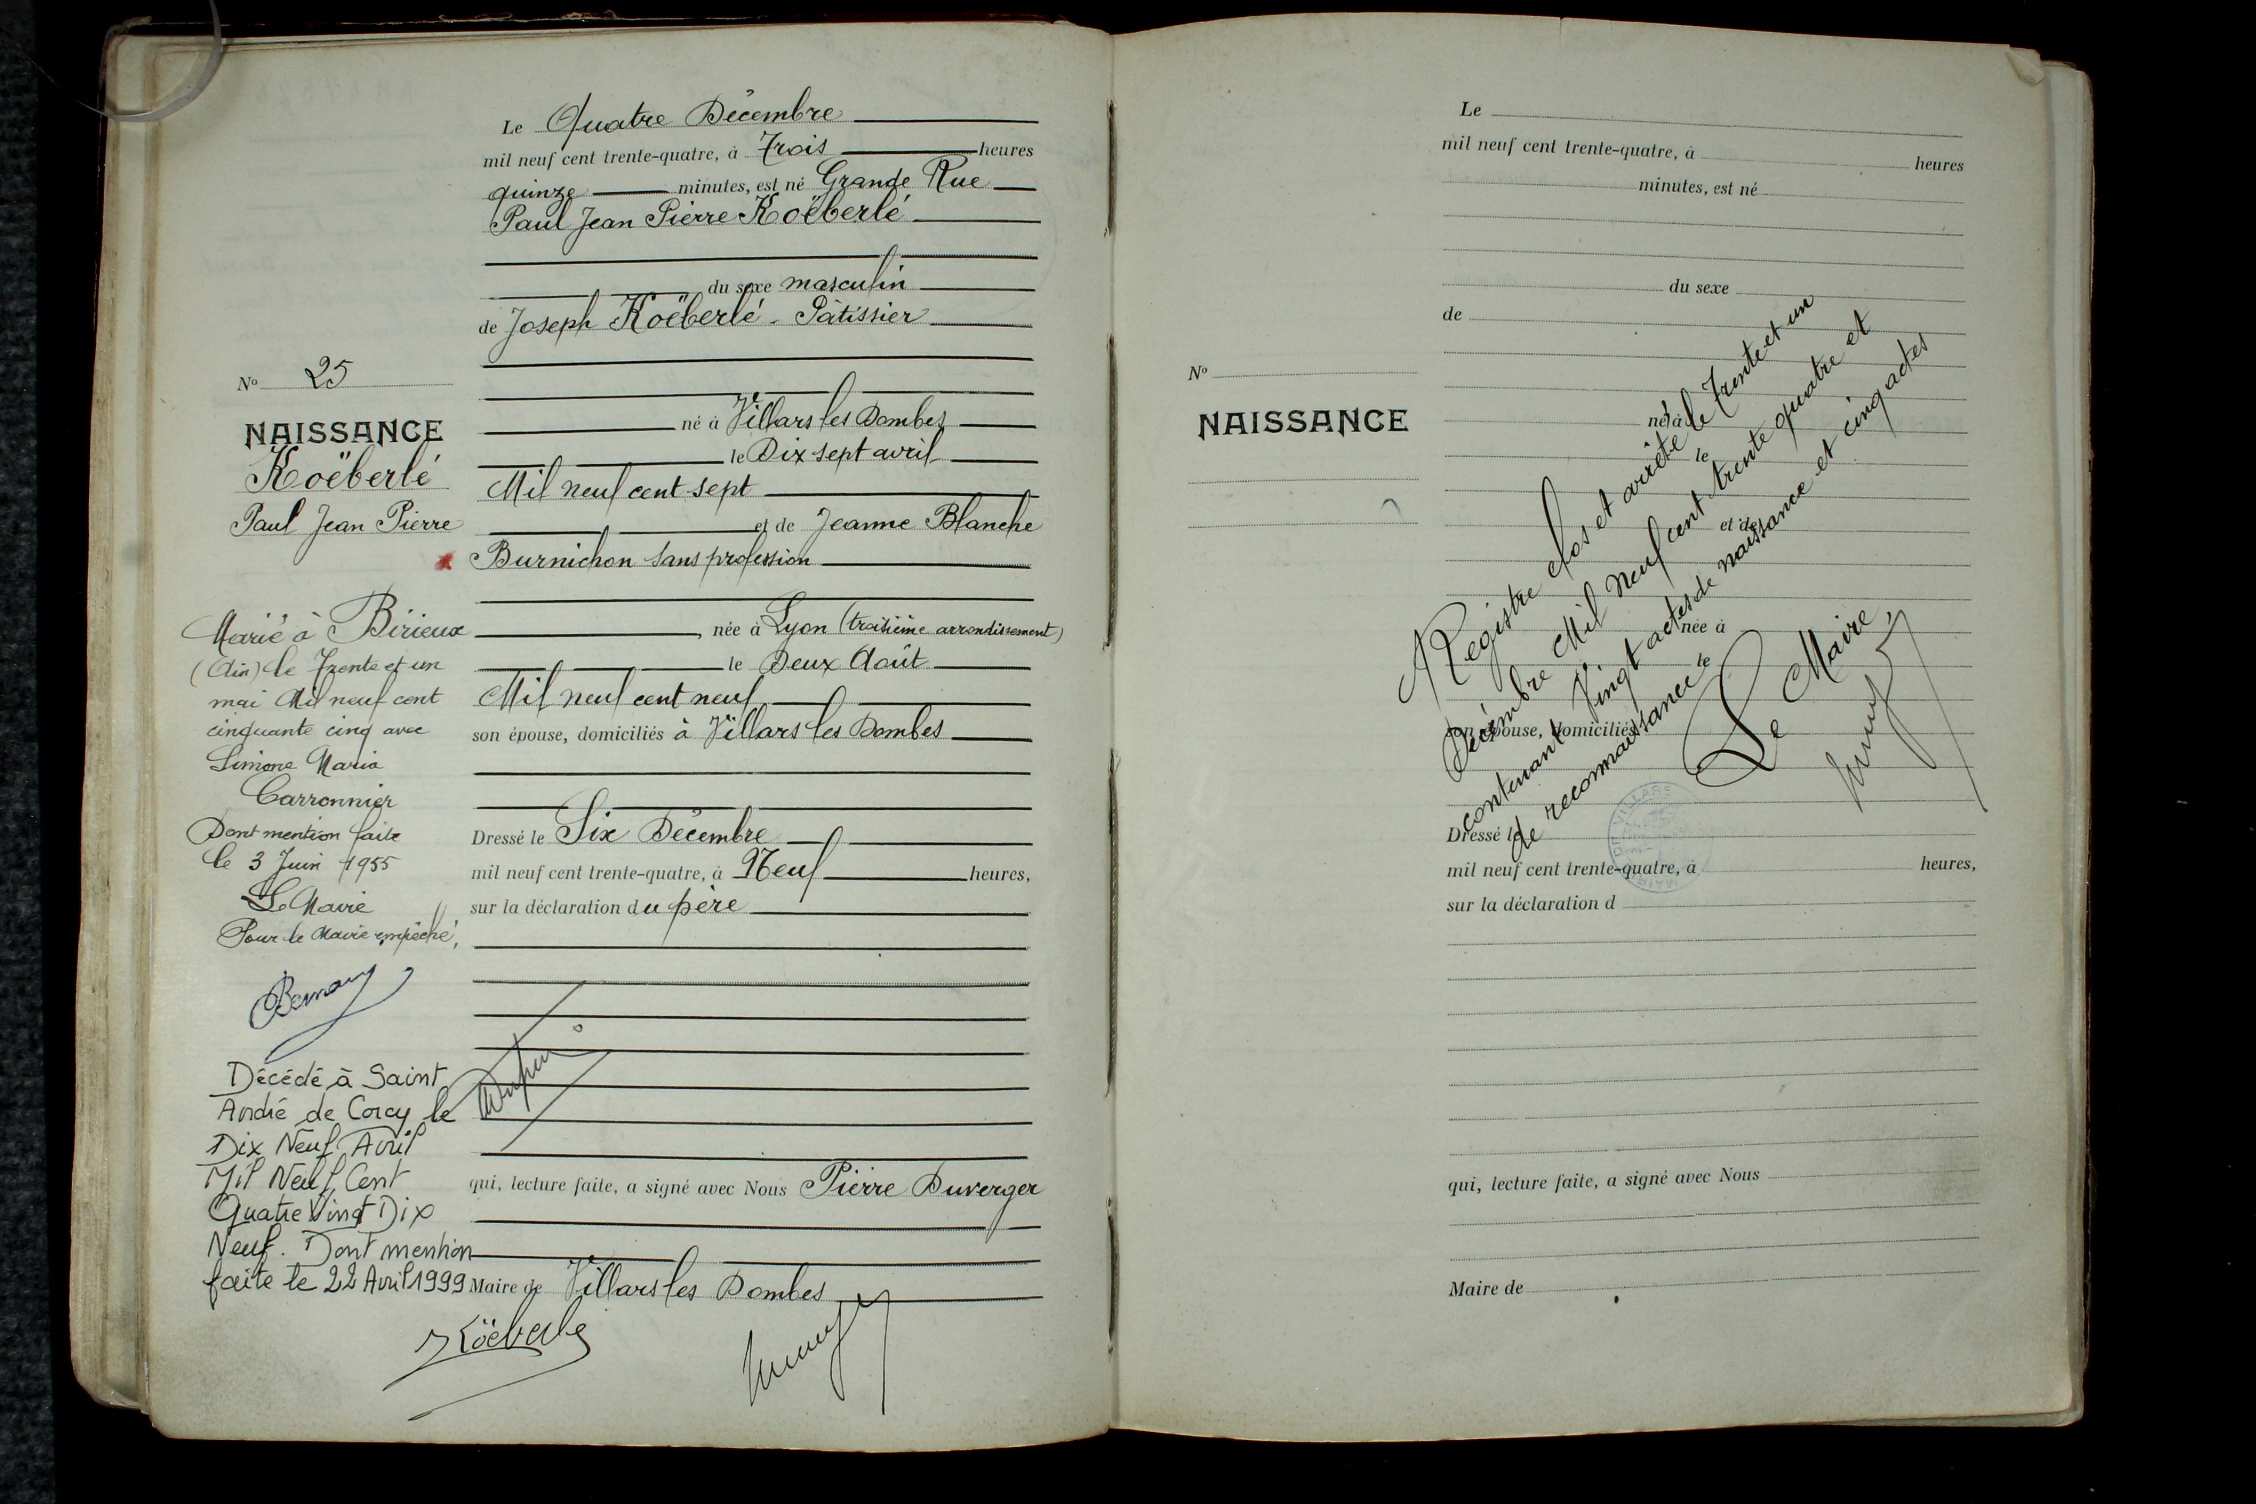 Le Quatre Décembre
mil neuf cent trente-quatre, à Trois heures
quinze minutes, est né Grande Rue
Paul Jean Pierre Koëberlé
du sexe masculin
de Joseph Koëberlé - Pâtissier
né à Villars les Dombes
le Dix sept avril
Mil neuf cent sept
et de Jeanne Blanche
Burnichon sans profession
née à Lyon (troisième arrondissement)
le Deux Août
Mil neuf cent neuf
son épouse, domiciliés à Villars les Dombes
Dressé le Six Décembre
mil neuf cent trente-quatre, à Neuf heures,
sur la déclaration du père
qui, lecture faite, a signé avec Nous Pierre Duverger
Maire de Villars les Dombes
Koëberlé
No 25
NAISSANCE
Koëberlé
Paul Jean Pierre
Marié à Birieux
(Ain) le Trente et un
mai Mil neuf cent
cinquante cinq avec
Simone Maria
Carronnier
Dont mention faite
le 3 Juin 1955
Le Maire
Pour le Maire empêché,
Décédé à Saint
André de Corcy le
Dix Neuf Avril
Mil Neuf Cent
Quatre Vingt Dix
Neuf. Dont mention
faite le 22 Avril 1999
Le
mil neuf cent trente-quatre, à heures
minutes, est né
du sexe
de
né à
le
et de
née à
le
son épouse, domiciliés
Dressé le
mil neuf cent trente-quatre, à heures,
sur la déclaration d
qui, lecture faite, a signé avec Nous
Maire de
No
NAISSANCE
Registre clos et arrêté le Trente et un
Décembre Mil neuf cent trente quatre et
contenant Vingt actes de naissance et cinq actes
de reconnaissance
Le Maire,
VILLARS